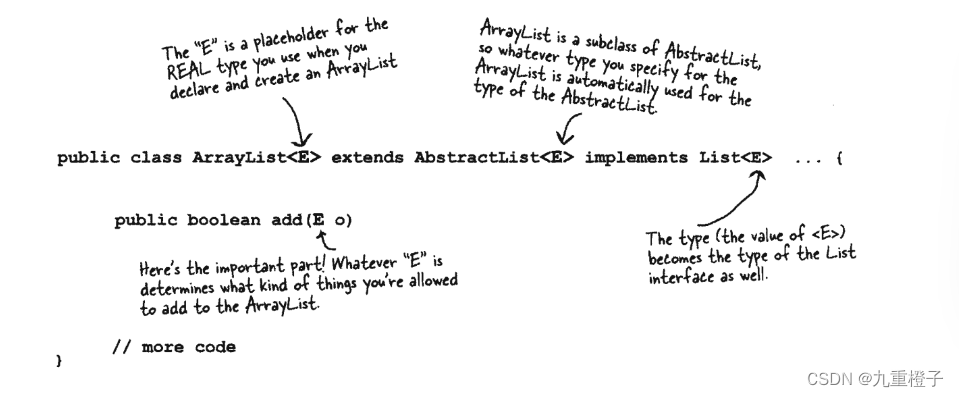 The "E" is a placeholder for the
REAL type you use when you
declare and create an ArrayList
ArrayList is a subclass of AbstractList,
so whatever type you specify for the
ArrayList is automatically used for the
type of the AbstractList.
public class ArrayList<E> extends AbstractList<E> implements List<E> ... {
public boolean add(E o)
The type (the value of <E>)
becomes the type of the List
interface as well.
Here's the important part! Whatever "E" is
determines what kind of things you're allowed
to add to the ArrayList.
// more code
}
CSDN @九重橙子